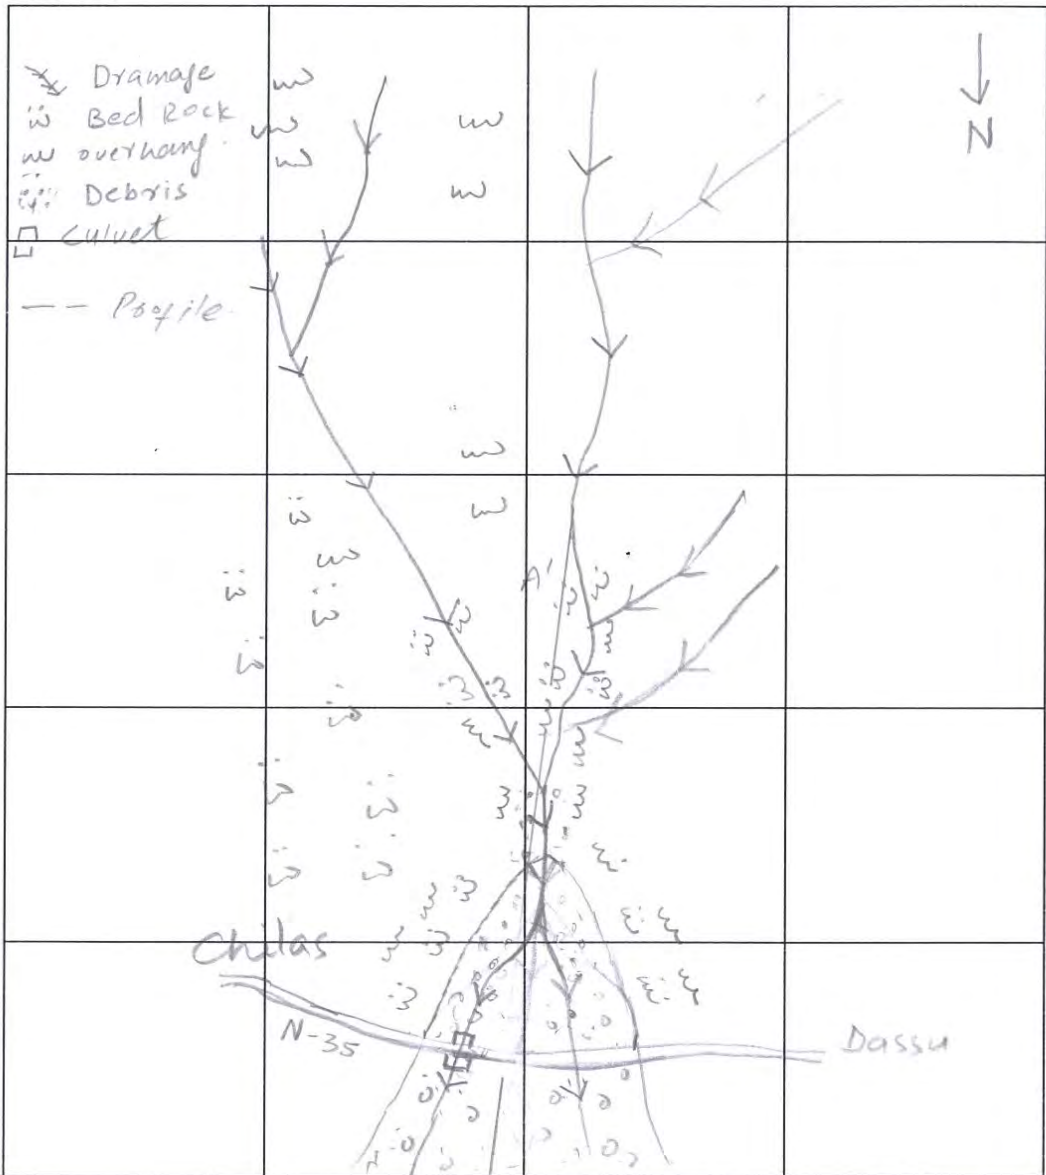 Dramage
Bed Rock
overhang
Debris
Culvet
Profile
N
A'
Chilas
N-35
Dassu